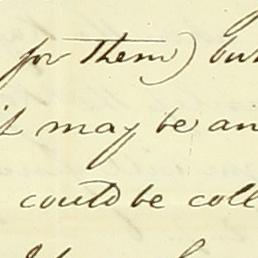 for them) but
it may be an
could be coll